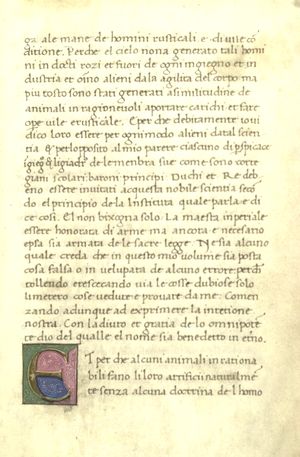 ga ale mane de homini rusticali. e. di vile cō
ditione. Perche el cielo non a generato tali homi
ni indocti rozi et fuori de ogni ingiegno et in
dustria et o ino alieni da la agilita del corpo ma
piu tosto sono stati generati a similitudine de
animali in ragionevoli a portare carichi et fare
ope vile e rusticale. E per che debitamente io vi
dico loro essere per ogni modo alieni da tal scien
tia & per l opposito al mio parere ciascuno di pspicace
igieg̃ & ligiadr̃ de le membra sue come sono corte
giani scolari baroni principi Duchi et Re deb
eno essere invitati a cquesta nobile scientia secō
do el principio de la Instituta quale parla e di
ce cosi. El non bixogna solo. La maesta inperiale
essere honorata di arme ma ancora e necesario
epsa sia armata de le sacre legge. Ne sia alcuno
quale creda che in questo mio volume sia posta
cosa falsa o in velupata de alcuno errore. perch̄
tollendo e resecando via le cosse dubiose solo
li metero cose vedute e provate da me. Comen
zando adunque ad exprimere la intetione
nostra. Con la diuto et gratia de lo omnipotē
te dio del qualle el nome sia benedetto in etño.
E T per che alcuni animali in rationa
bili fano li loro artificii naturalmē
te senza alcuna doctrina de l homo